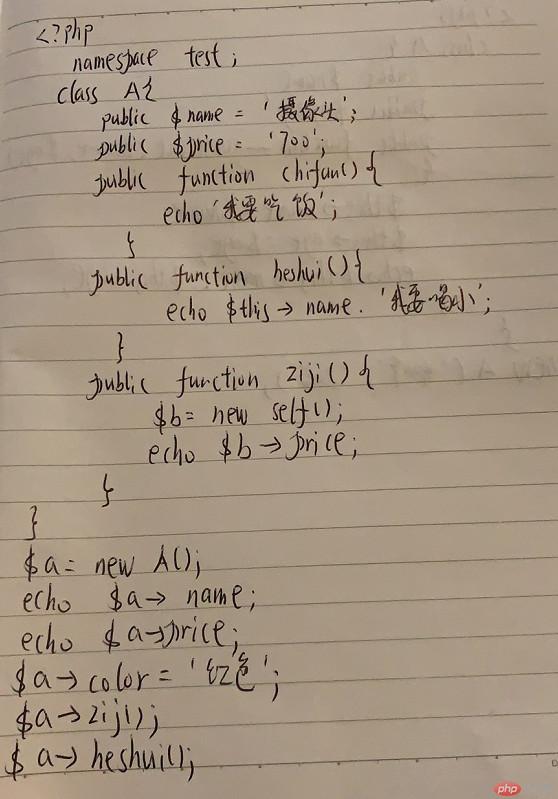 <?php
namespace test;
class A{
public $name = '摄像头';
public $price = '700';
public function chifan() {
echo '我要吃饭';
}
public function heshui(){
echo $this→ name. '我要喝水';
}
public function ziji() {
$b= new self();
echo $b→price;
}
}
$a= new A();
echo $a→ name;
echo $a→price;
$a→color = '红色';
$a→ziji();
$a→heshui();
php